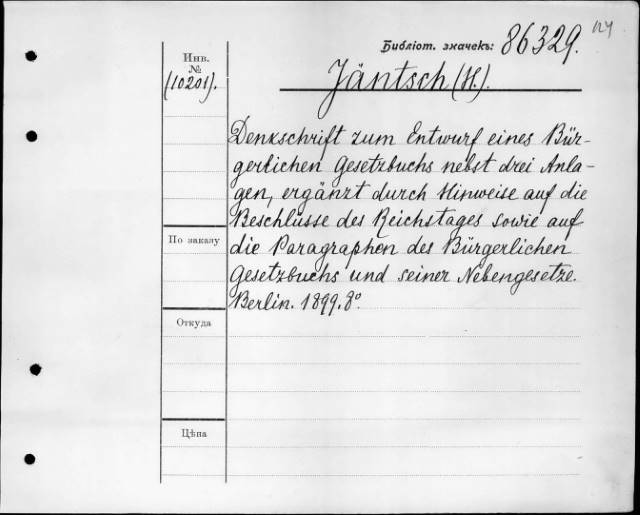 124
Библіот. значекъ: 86329.
Инв.
№
(10201).
Jäntsch (H.).
Denkschrift zum Entwurf eines Bür-
gerlichen Gesetzbuchs nebst drei Anla-
gen, ergänzt durch Hinweise auf die
Beschlüsse des Reichstages sowie auf
die Paragraphen des Bürgerlichen
Gesetzbuchs und seiner Nebengesetze.
Berlin. 1899. 8º.
По заказу
Откуда
Цѣна